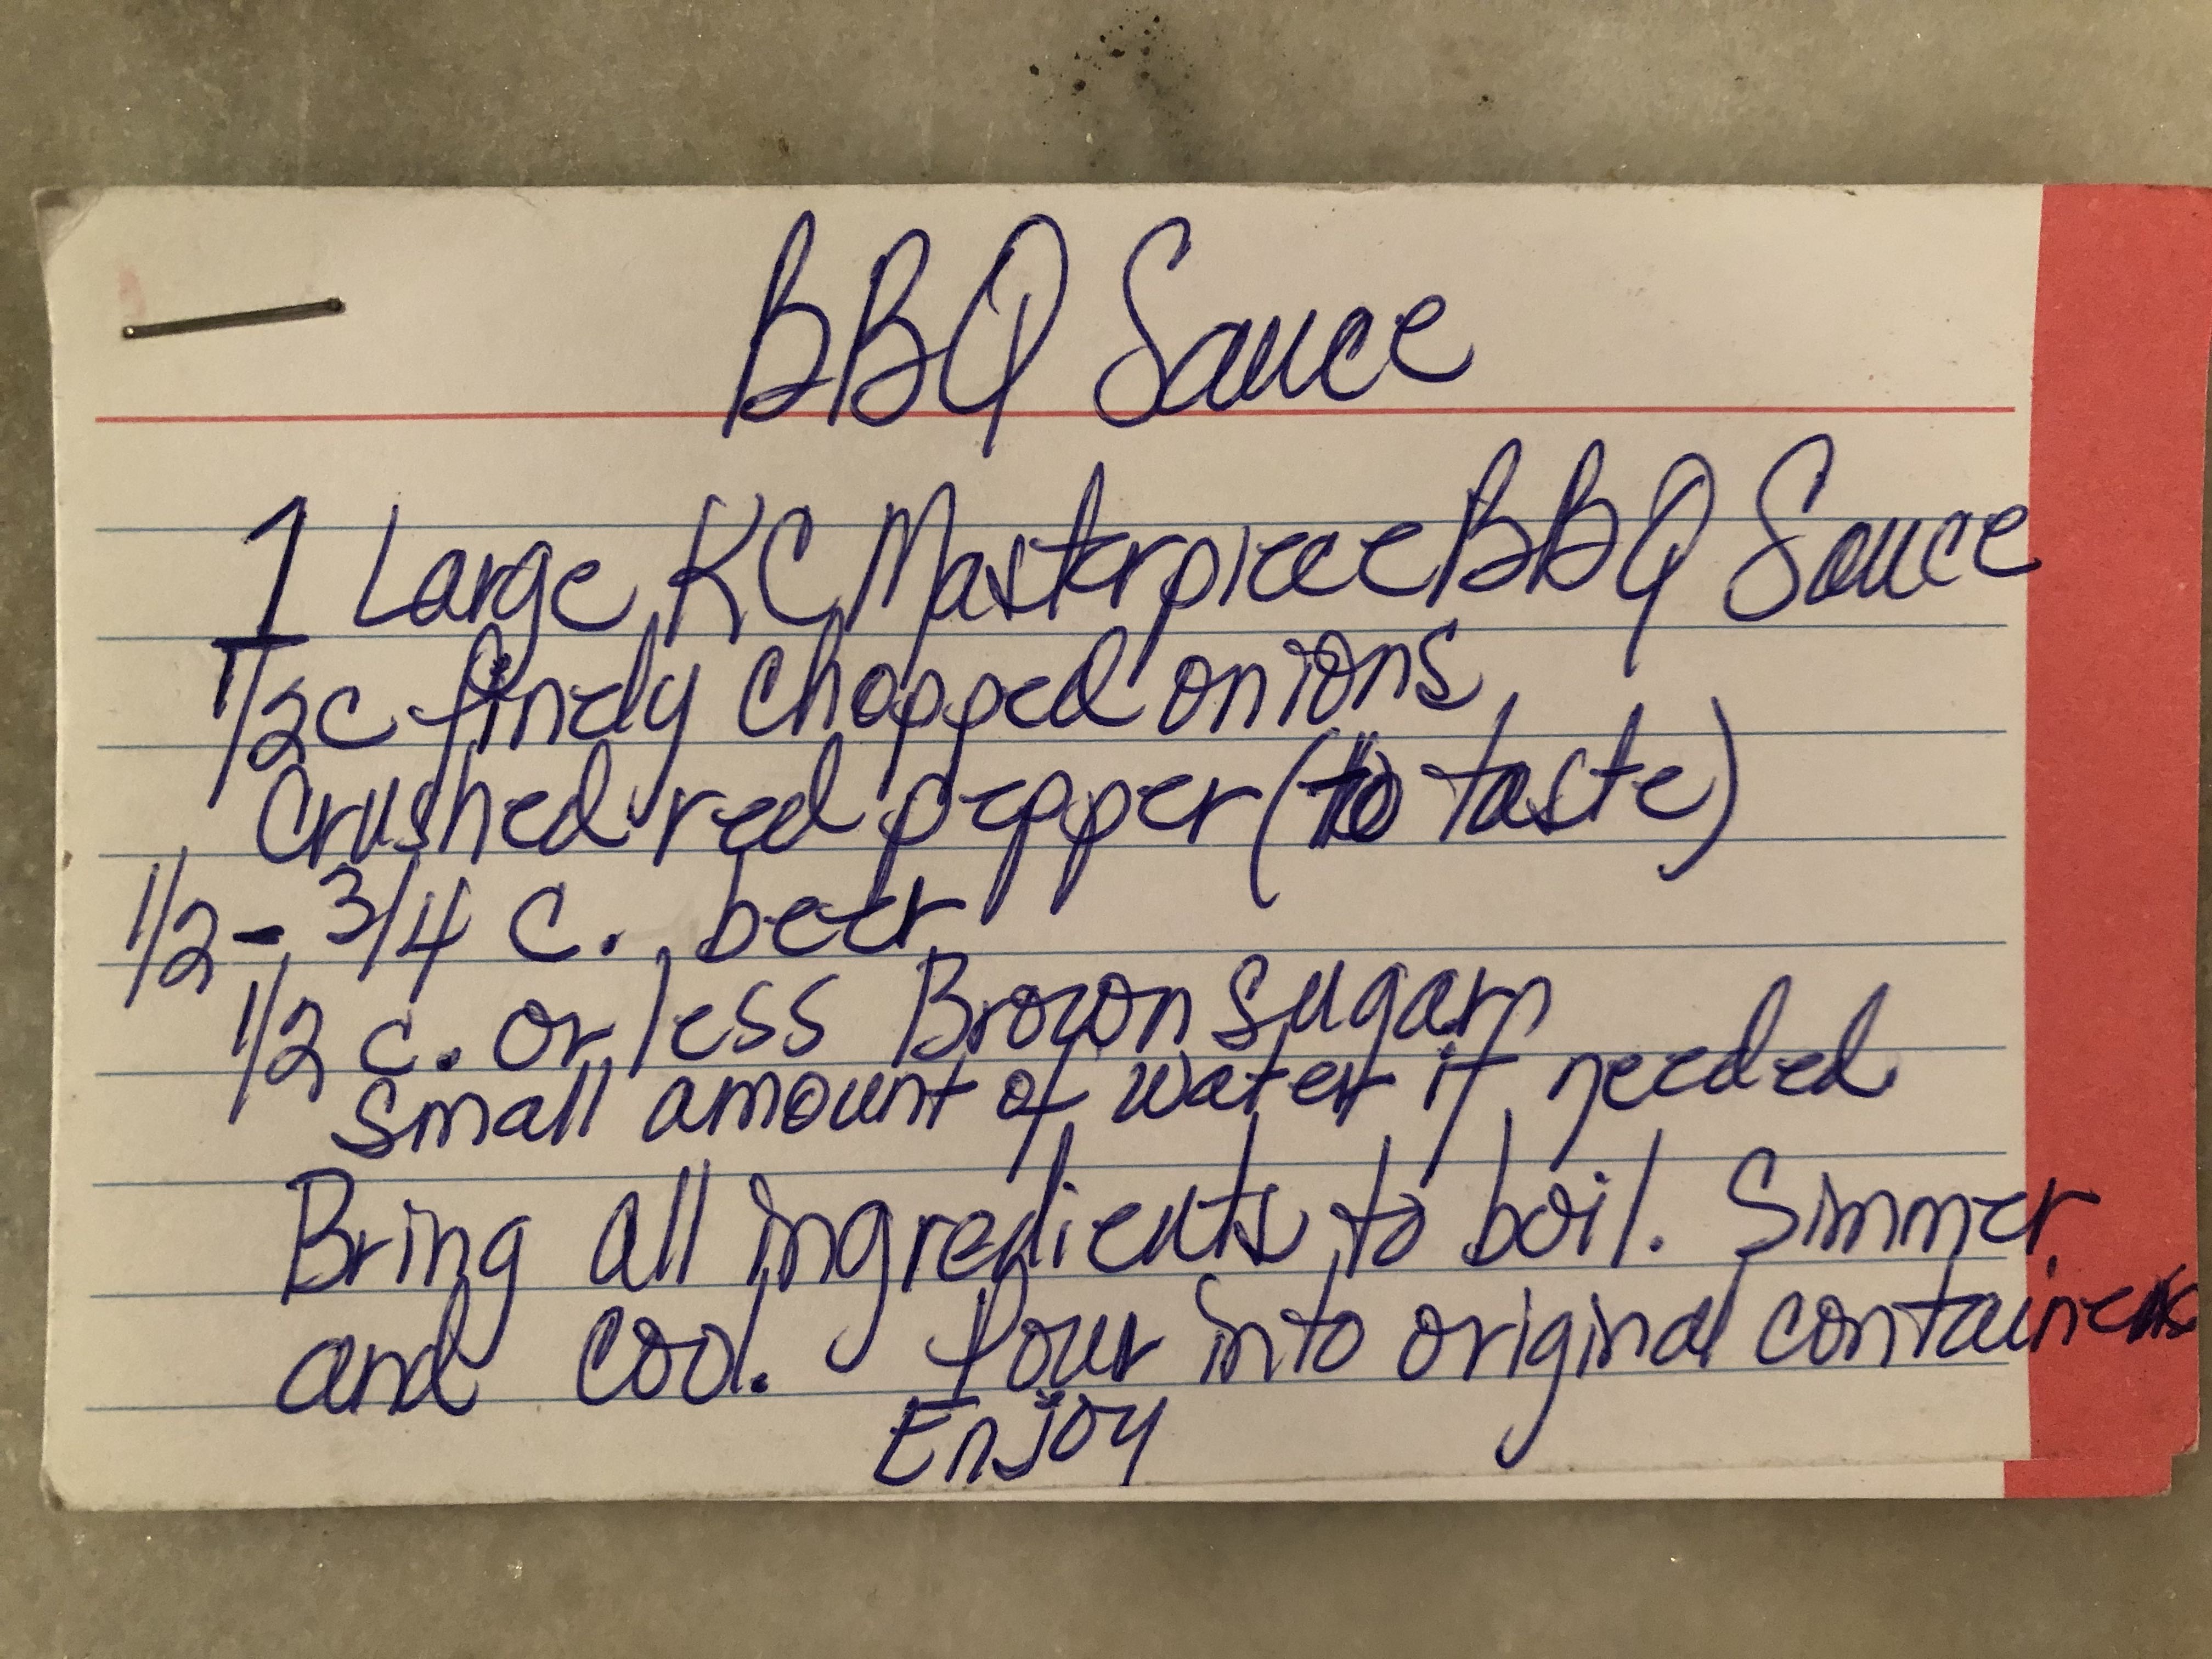 BBQ Sauce
1 Large KC Masterpiece BBQ Sauce
1/2 c finely chopped onions
Crushed red pepper (to taste)
1/2 - 3/4 c. beer
1/2 c. or less Brown sugar
Small amount of water if needed
Bring all ingredients to boil. Simmer
and cool. Pour into original containers
Enjoy